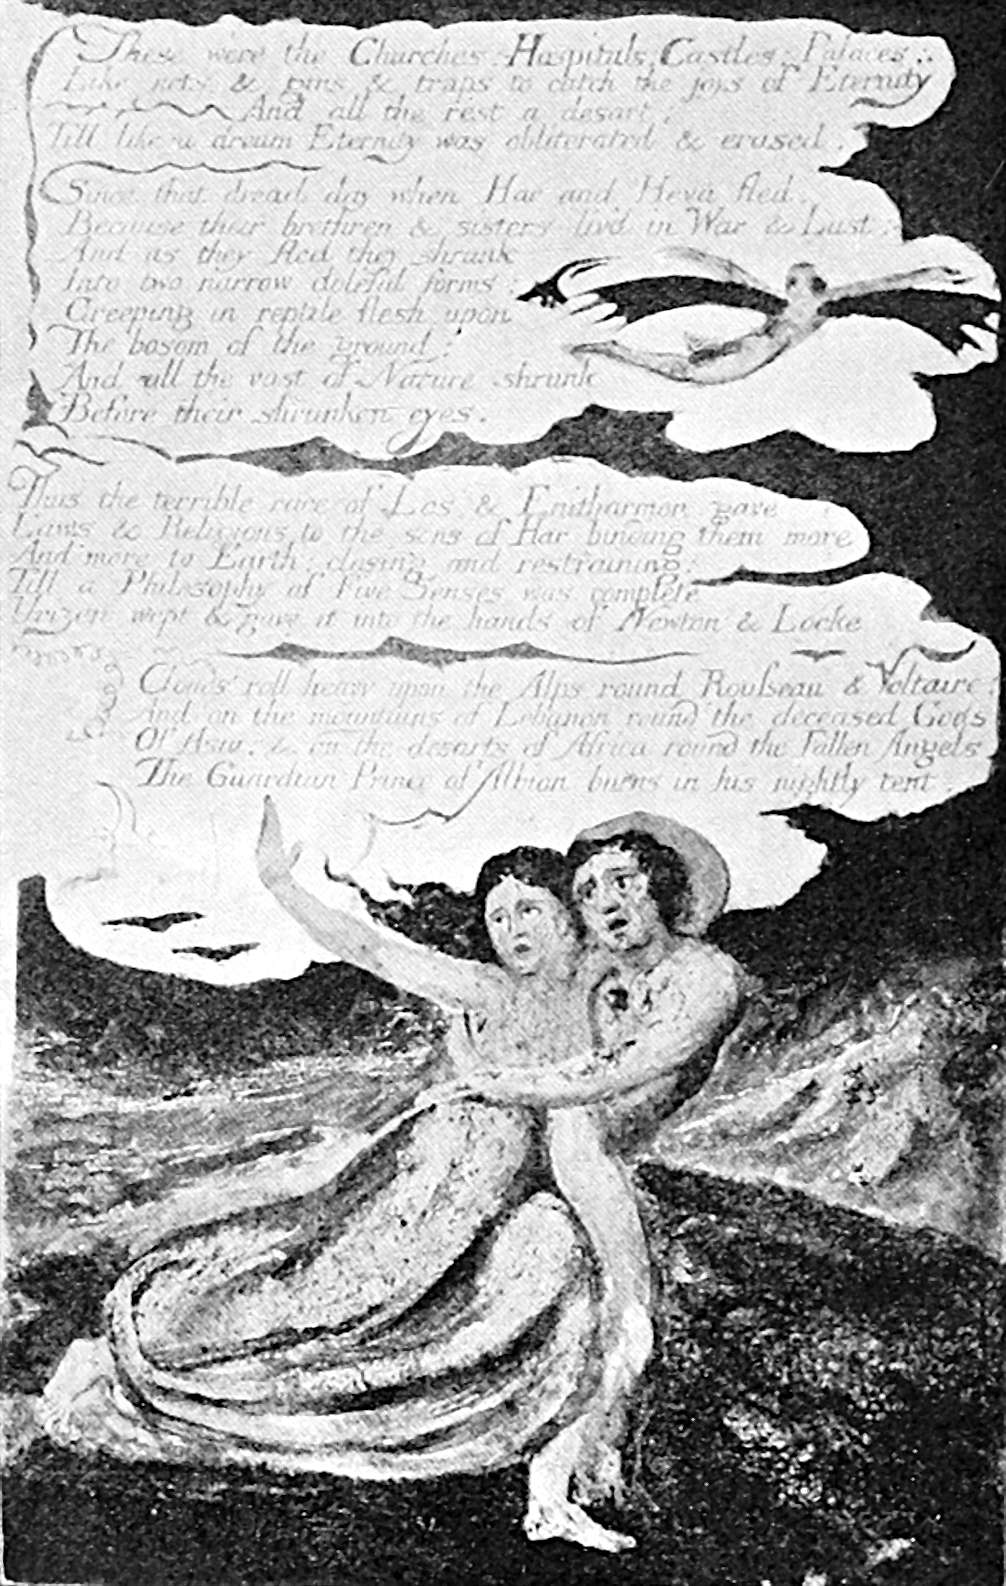 These were the Churches: Hospitals: Castles: Palaces:
Like nets & gins & traps to catch the joys of Eternity
And all the rest a desart;
Till like a dream Eternity was obliterated & erased.
Since that dread day when Har and Heva fled.
Because their brethren & sisters liv'd in War & Lust;
And as they fled they shrunk
Into two narrow doleful forms:
Creeping in reptile flesh upon
The bosom of the ground:
And all the vast of Nature shrunk
Before their shrunken eyes.
Thus the terrible race of Los & Enitharmon gave
Laws & Religions to the sons of Har binding them more
And more to Earth: closing and restraining:
Till a Philosophy of Five Senses was complete
Urizen wept & gave it into the hands of Newton & Locke
Clouds roll heavy upon the Alps round Rousseau & Voltaire:
And on the mountains of Lebanon round the deceased Gods
Of Asia; & on the desarts of Africa round the Fallen Angels
The Guardian Prince of Albion burns in his nightly tent